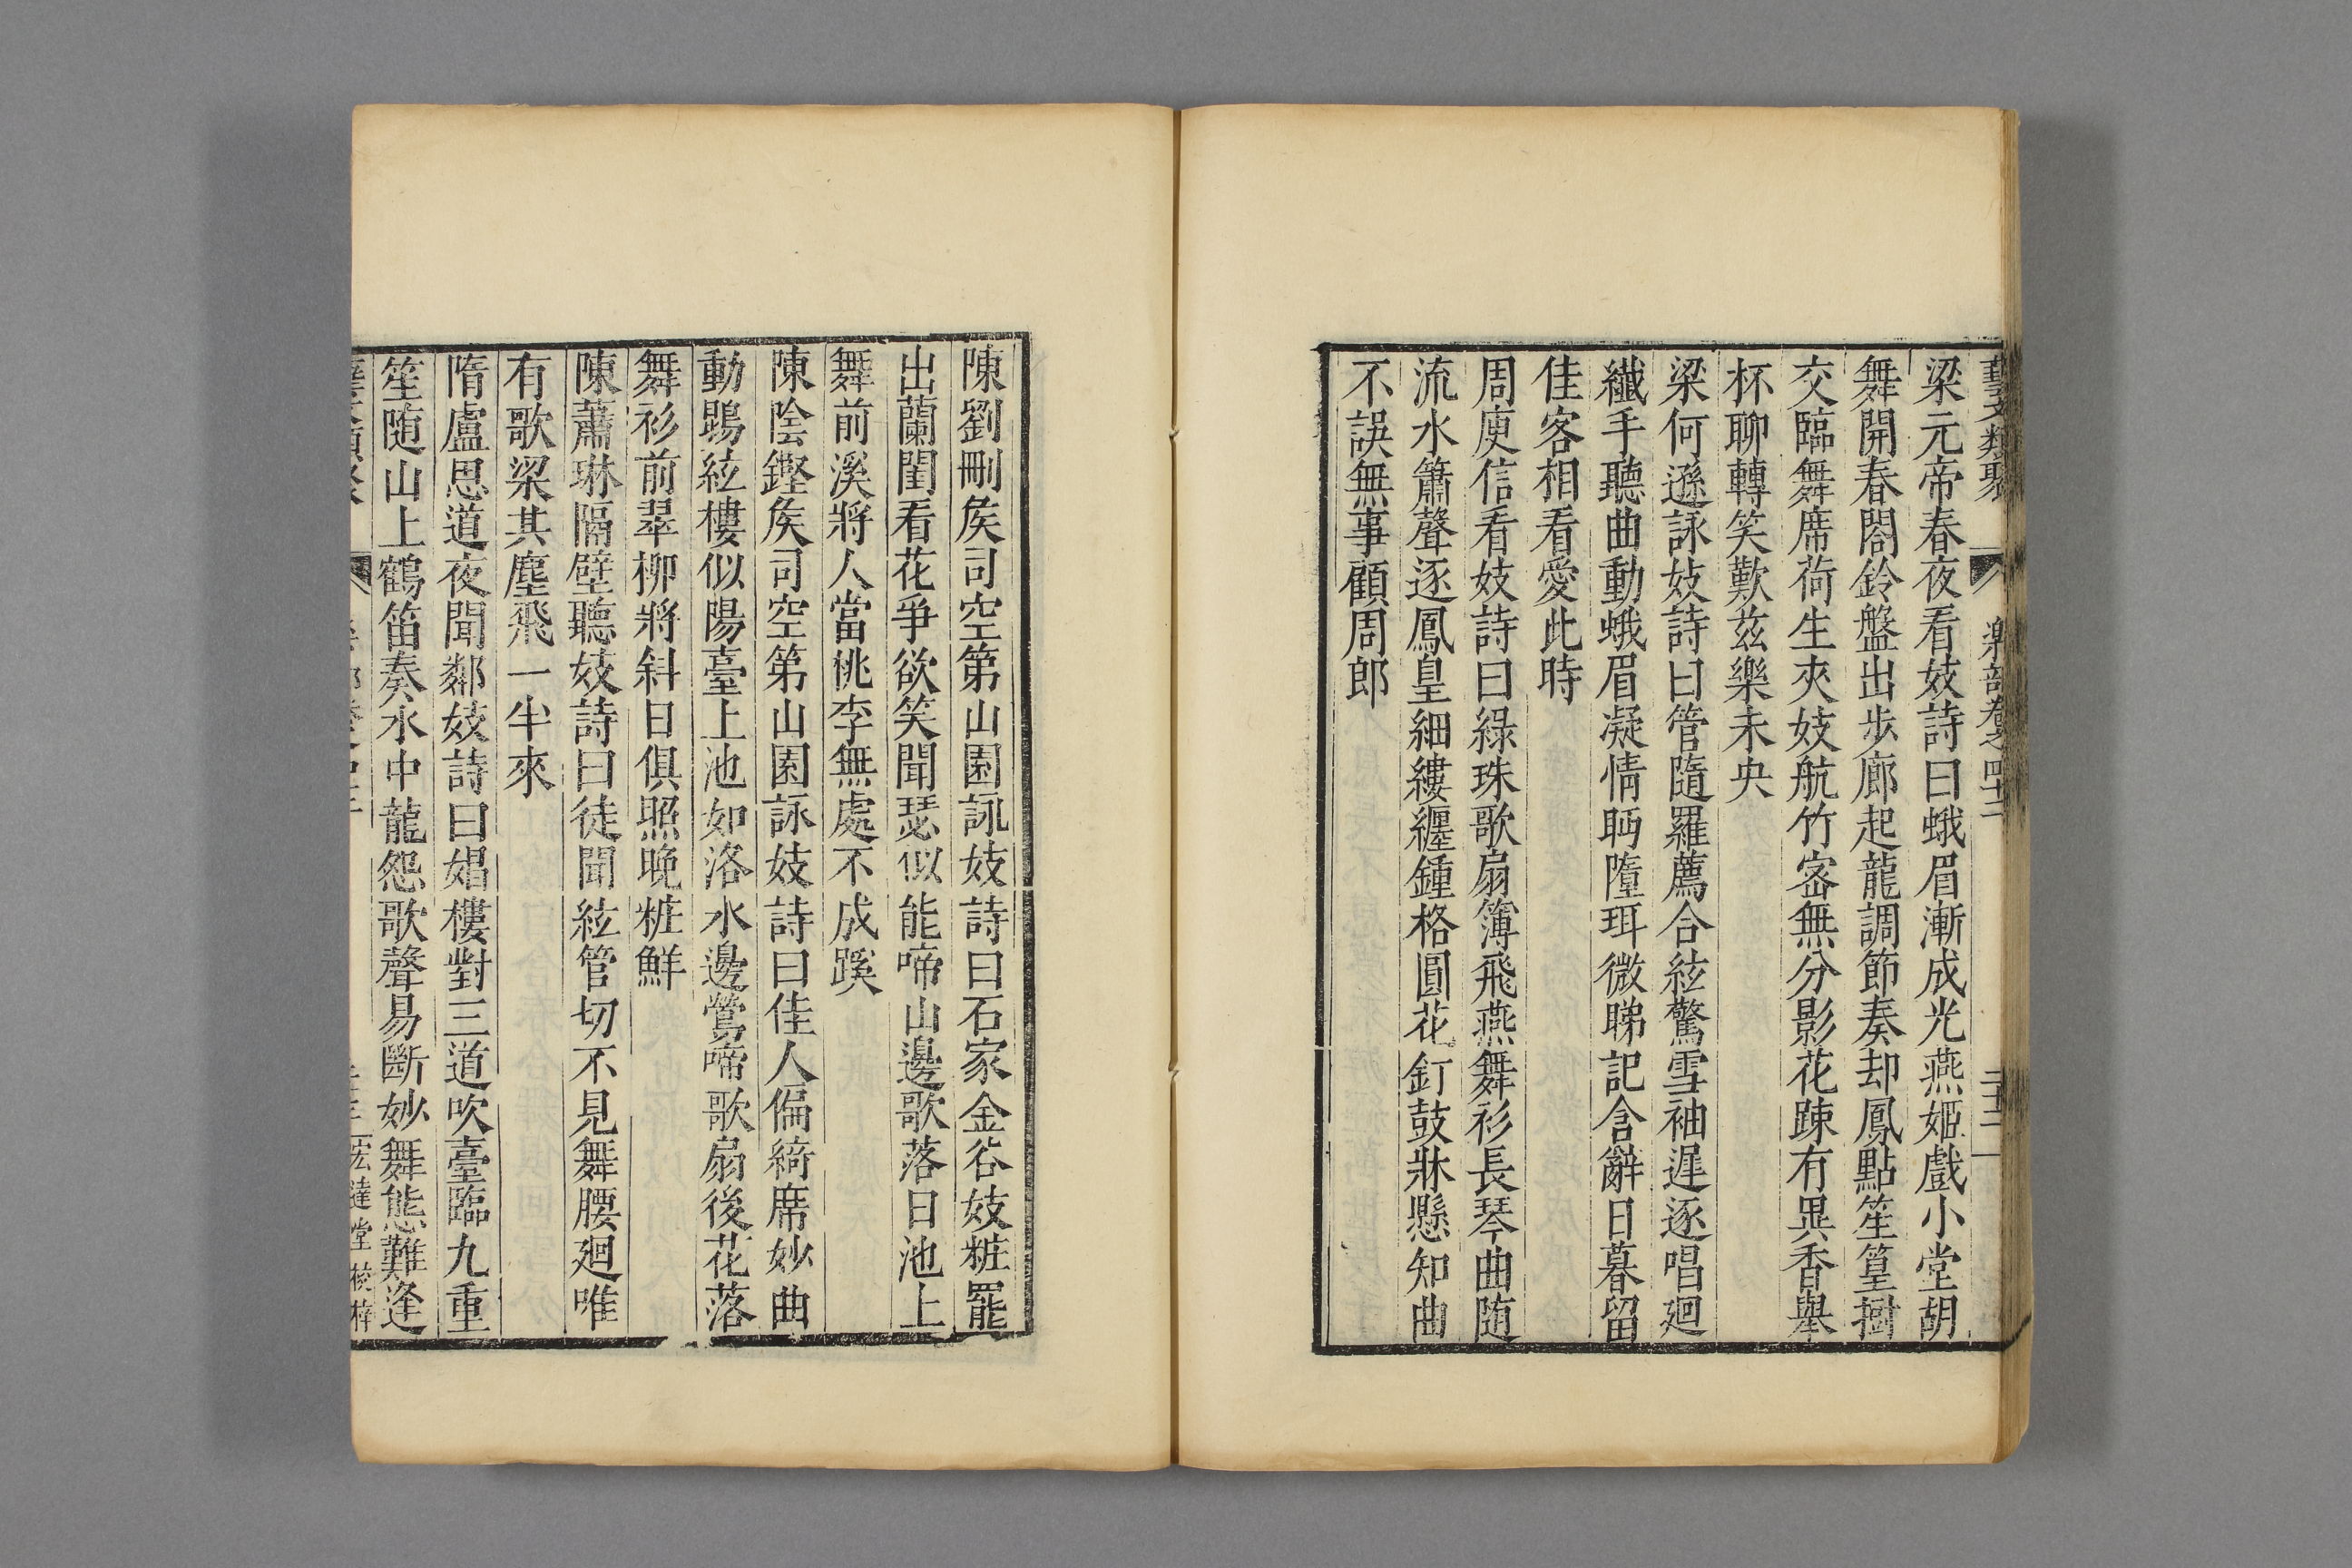 藝文類聚 樂部卷之四十二 二十二
梁元帝春夜看妓詩曰蛾眉漸成光燕姬戲小堂胡
舞開春閣鈴盤出步廊起龍調節奏却鳳點笙簧樹
交臨舞席荷生夾妓航竹密無分影花踈有異香舉
杯聊轉笑歎茲樂未央
梁何遜詠妓詩曰管隨羅薦合絃驚雪袖遲逐唱廻
纖手聽曲動蛾眉凝情眄隨珥微睇記含辭日暮留
佳客相看愛此時
周庾信看妓詩曰綠珠歌扇簿飛燕舞衫長琴曲随
流水簫聲逐鳳皇細縷纏鍾格圓花釘鼓牀懸知曲
不誤無事顧周郎
陳劉刪矦司空第山園詠妓詩曰石家金谷妓粧罷
出蘭閨看花爭欲笑聞瑟似能啼山邊歌落日池上
舞前溪將人當桃李無處不成蹊
陳陰鏗矦司空第山園詠妓詩曰佳人偏綺席妙曲
動鵾絃樓似陽臺上池如洛水邊鶯啼歌扇後花落
舞衫前翠柳將斜日俱照晚粧鮮
陳蕭琳隔壁聽妓詩曰徒聞絃管切不見舞腰廻唯
有歌梁共塵飛一半來
隋盧思道夜聞鄰妓詩曰娼樓對三道吹臺臨九重
笙随山上鶴笛奏水中龍怨歌聲易斷妙舞態難逢